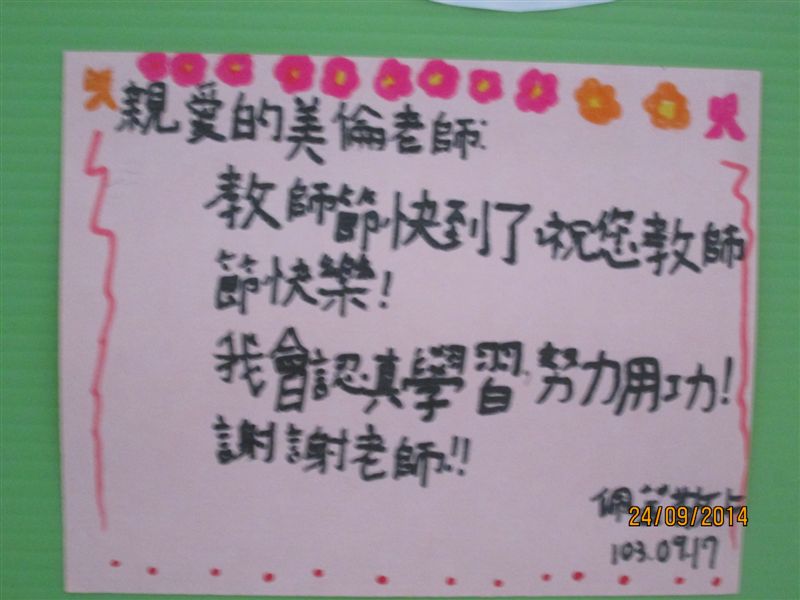 親愛的美倫老師:
教師節快到了,祝您教師
節快樂!
我會認真學習,努力用功!
謝謝老師!!
佩 敬上
24/09/2014
103.09.17